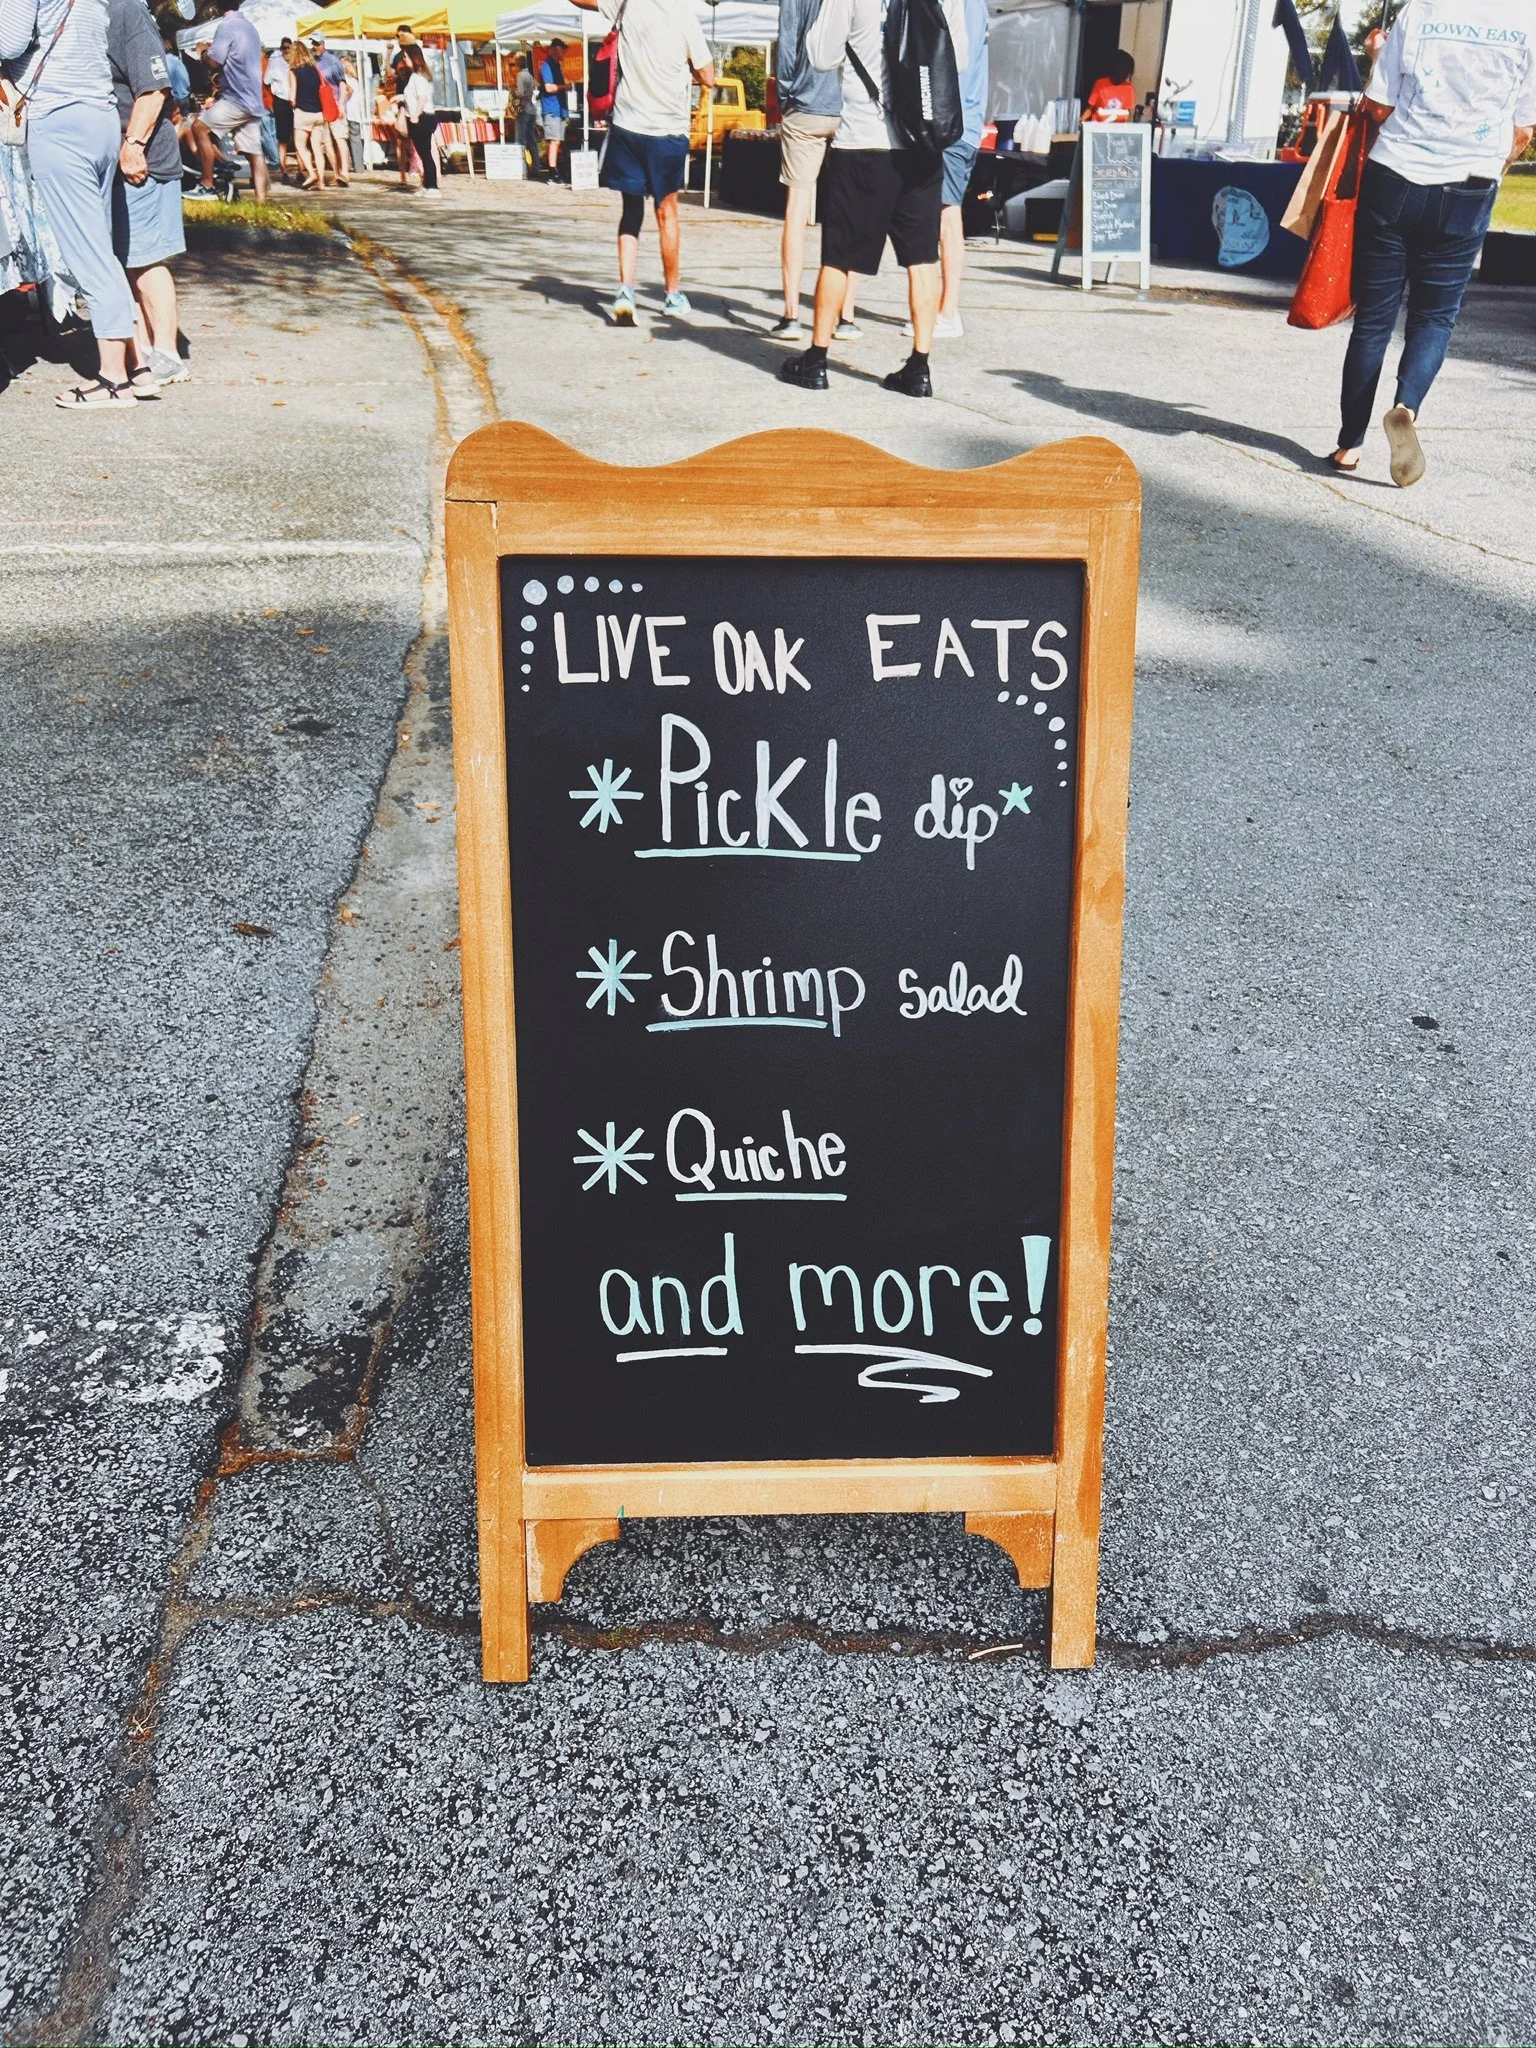 DOWN EAST
LIVE OAK EATS
Pickle dip
Shrimp salad
Quiche
and more!